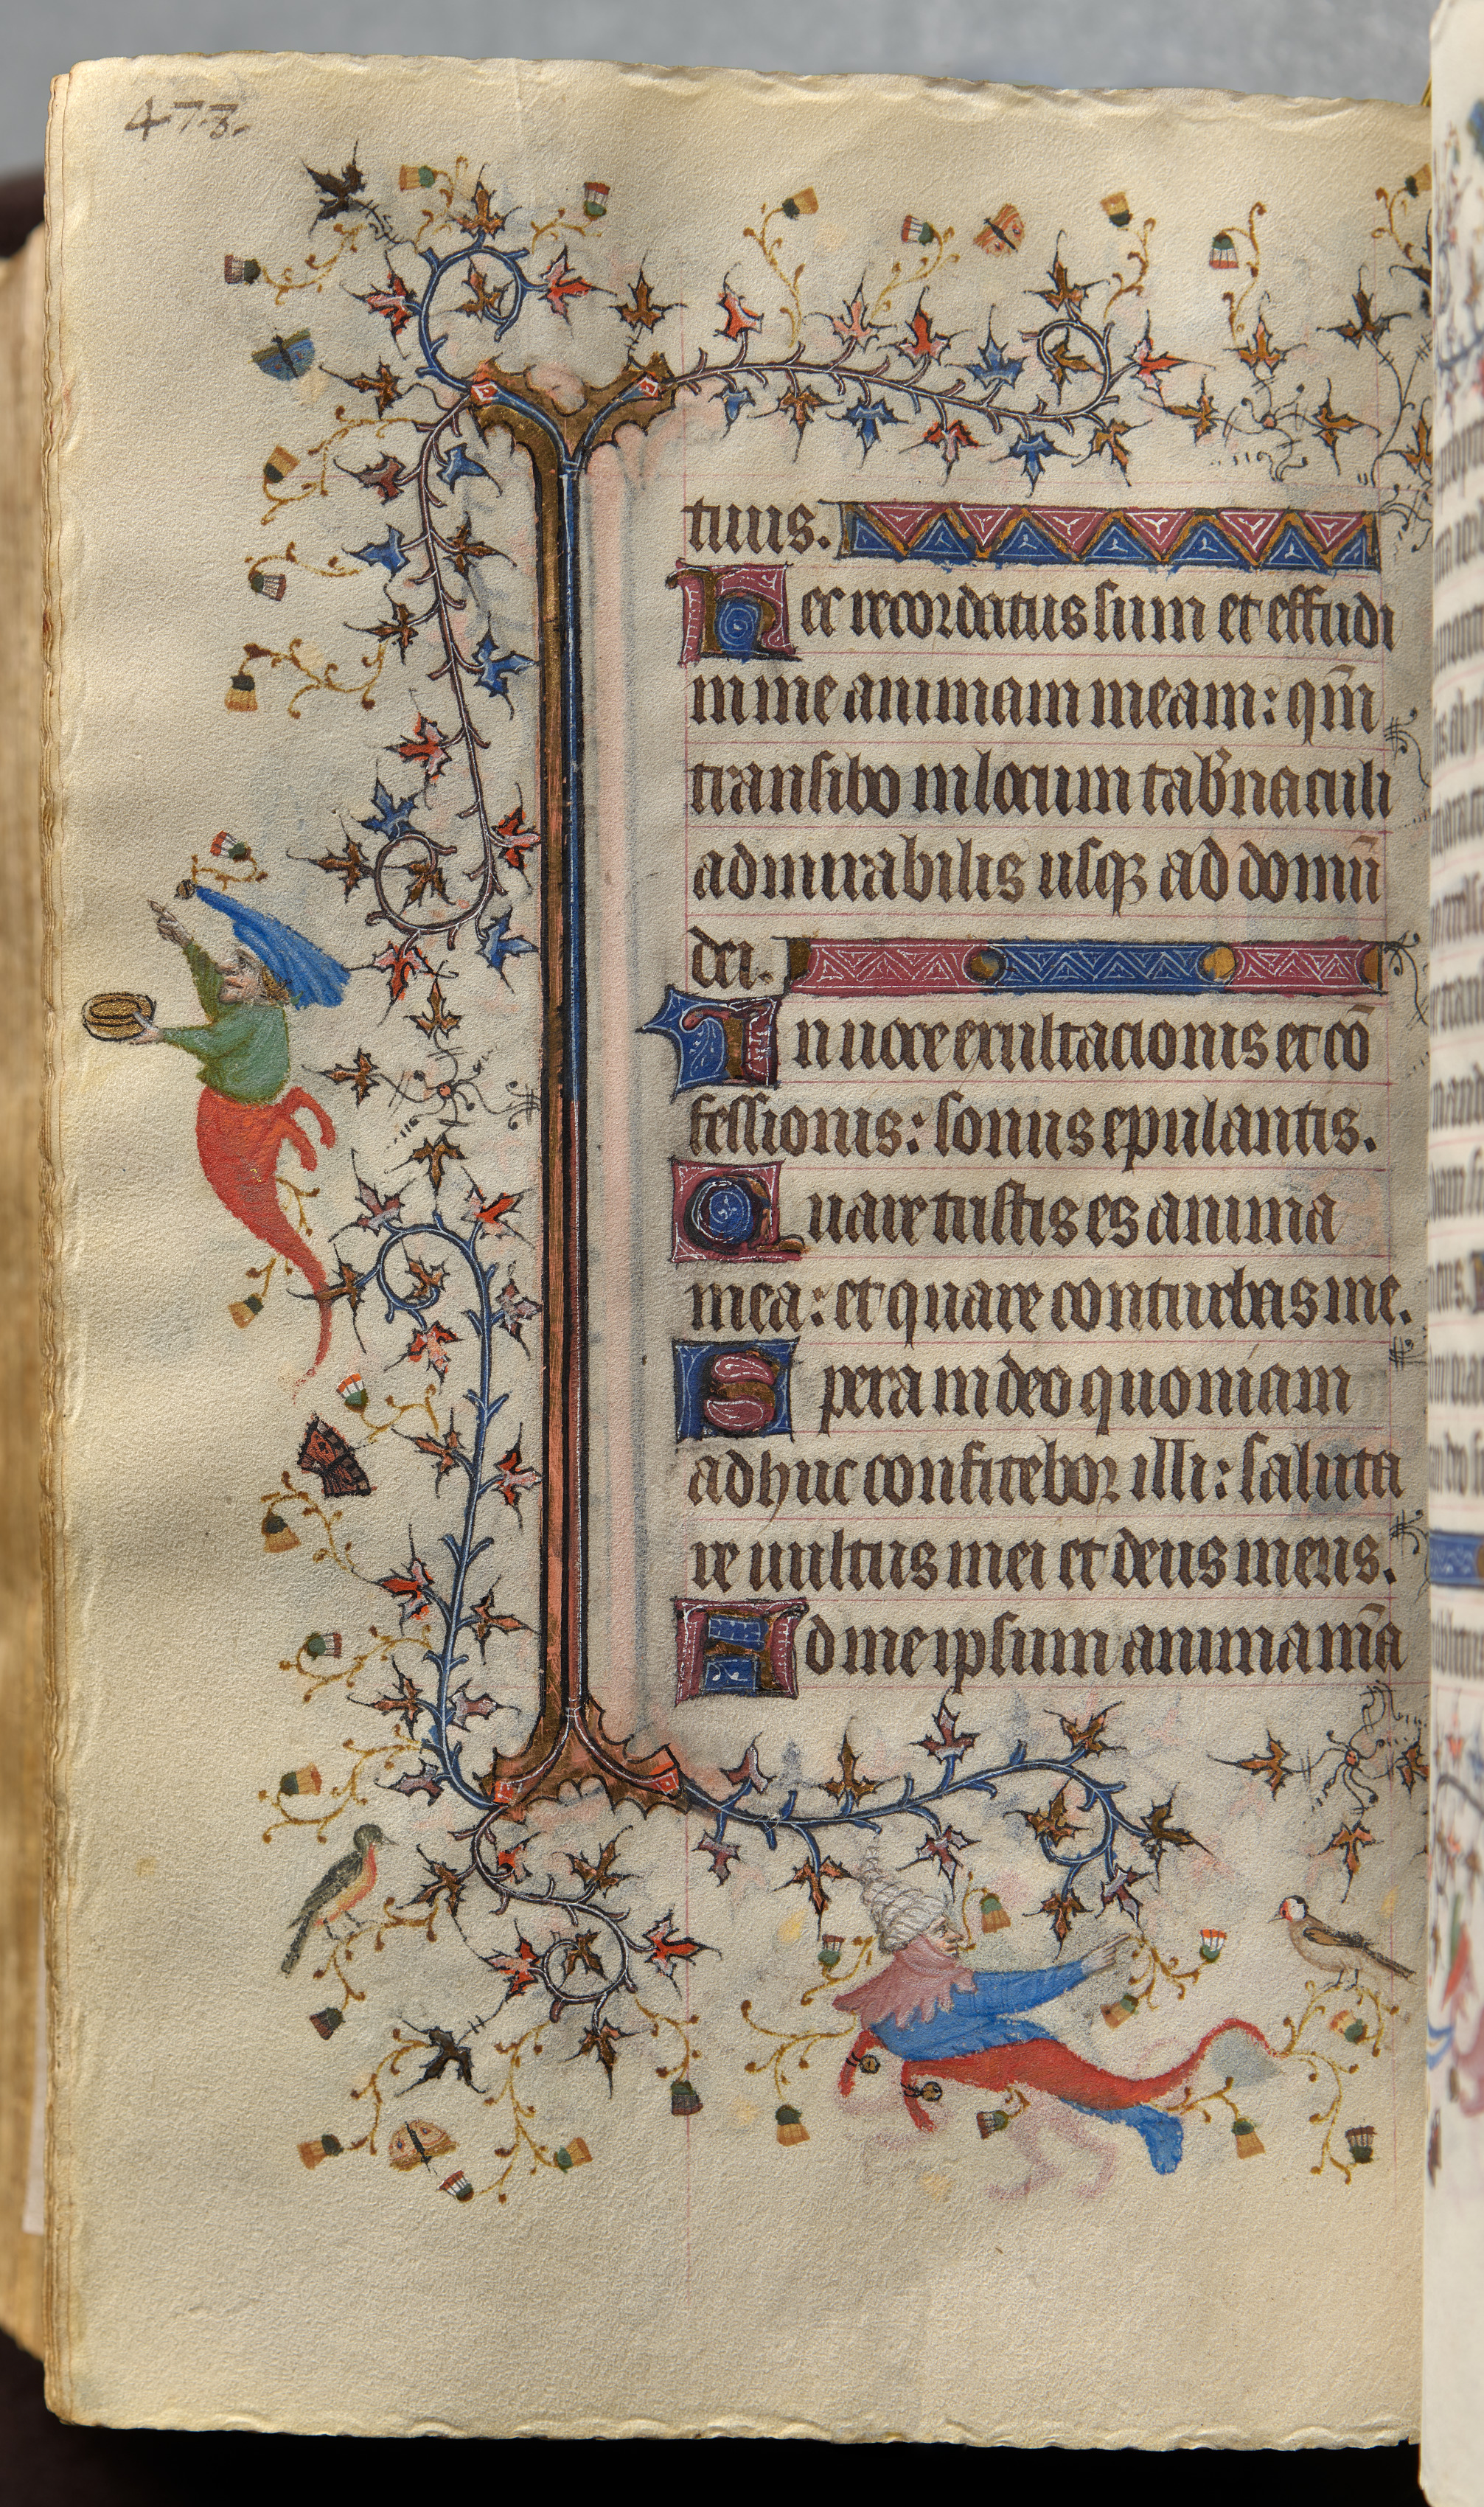 473.
tuus.
Hec recordatus sum et effudi
in me animam meam: qm̄
transibo in locum tab̾naculi
admirabilis usqꝫ ad domū
dei.
In uoce exultacionis et cō
fessionis: sonus epulantis.
Quare tristis es anima
mea: et quare conturbas me.
Spera in deo quoniam
adhuc confitebor illi: saluta
re uultus mei et deus meus.
Ad me ipsum anima m̄a